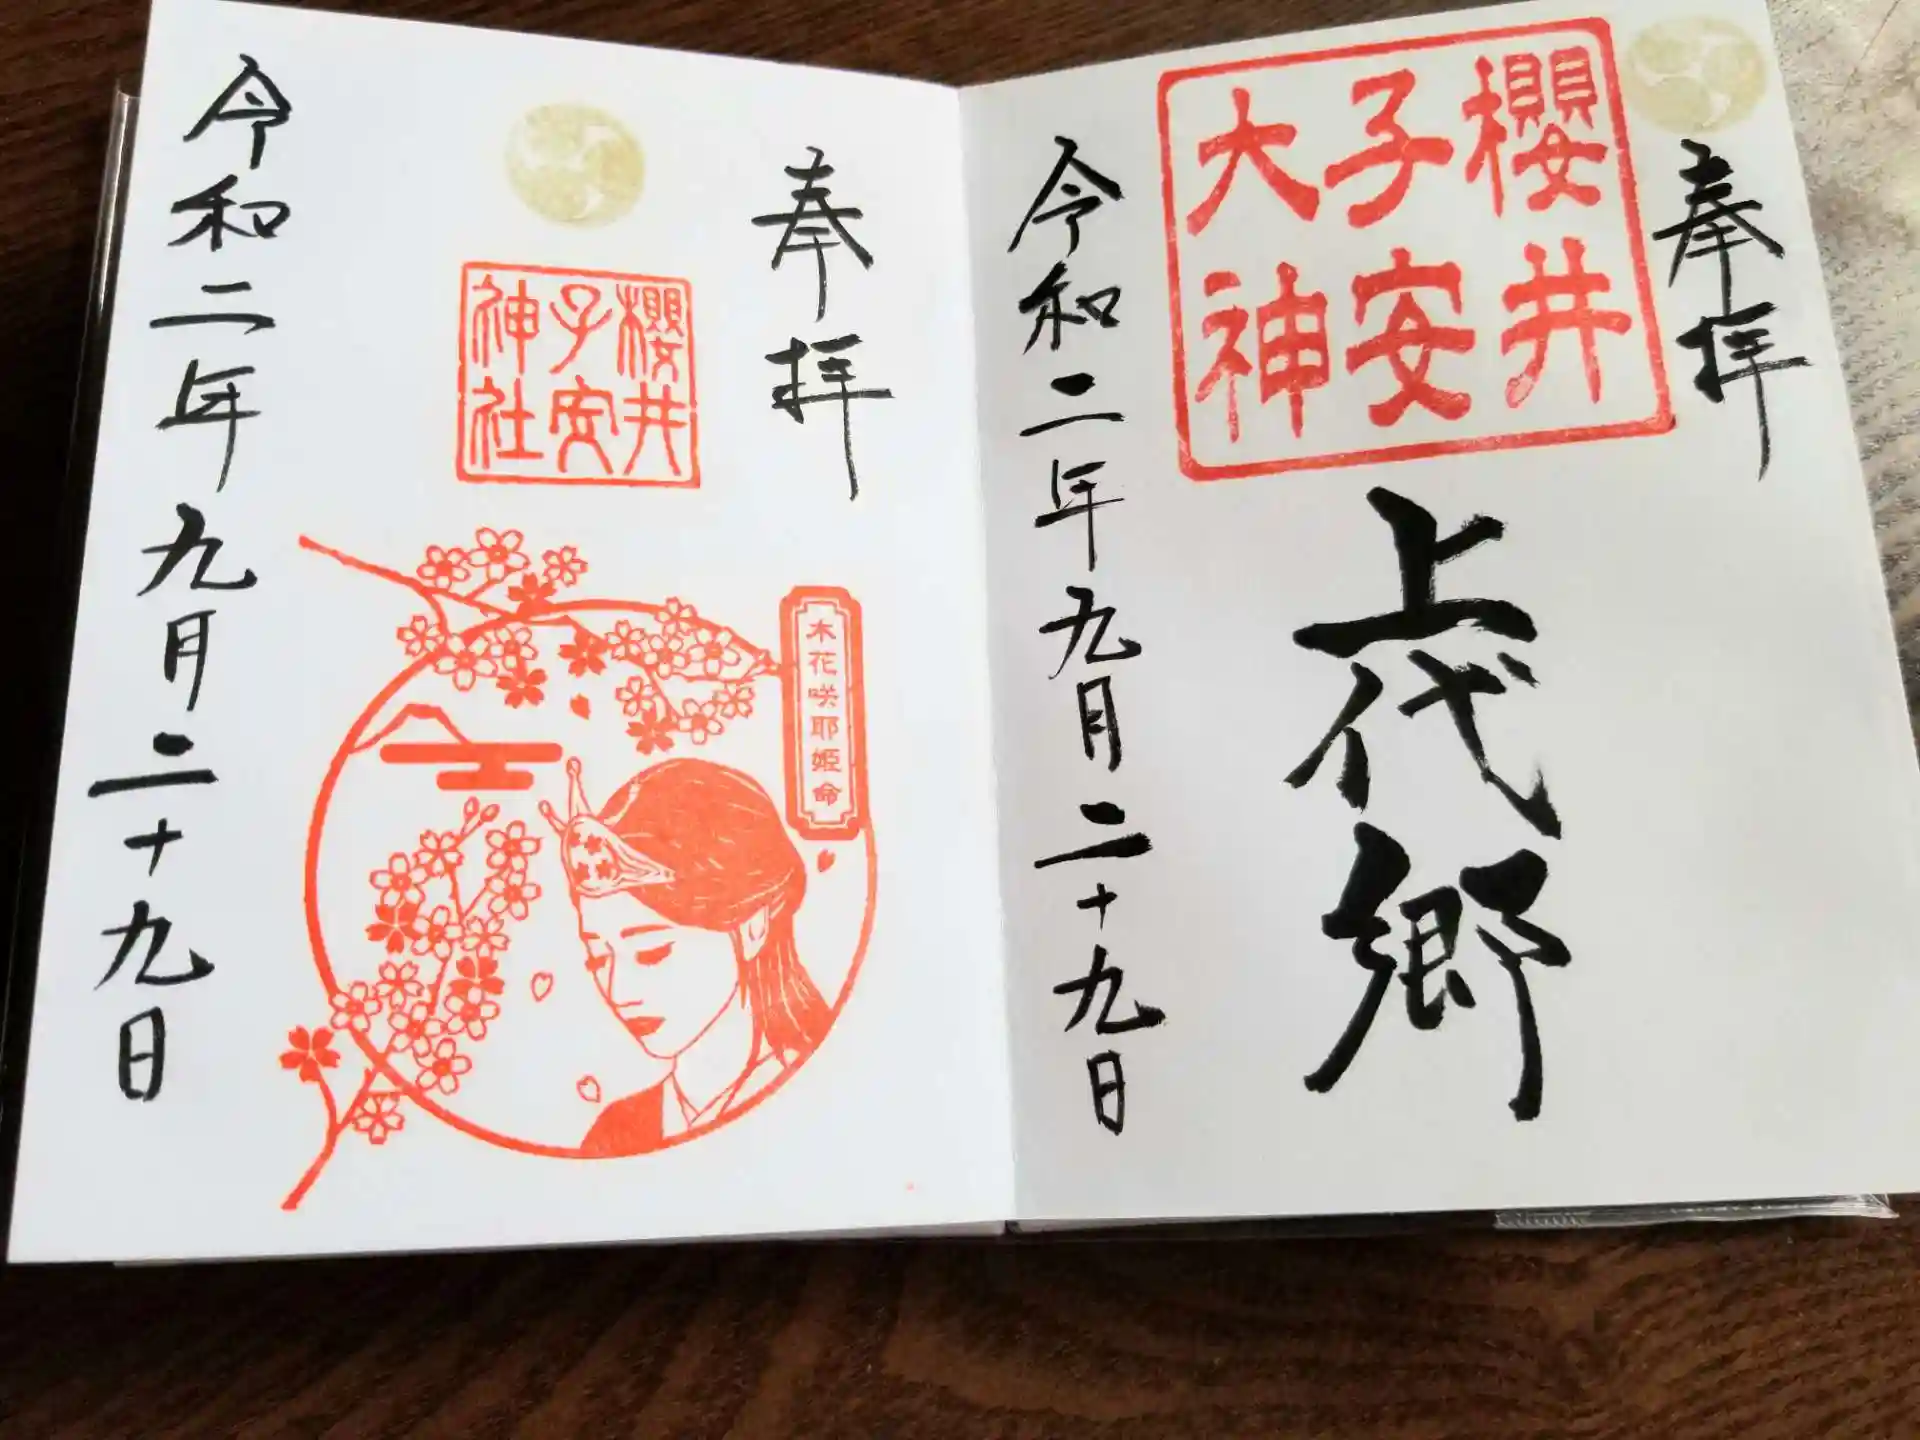 奉拝
櫻井
子安
大神
上代郷
令和二年九月二十九日
奉拝
櫻井
子安
神社
木花咲耶姫命
令和二年九月二十九日